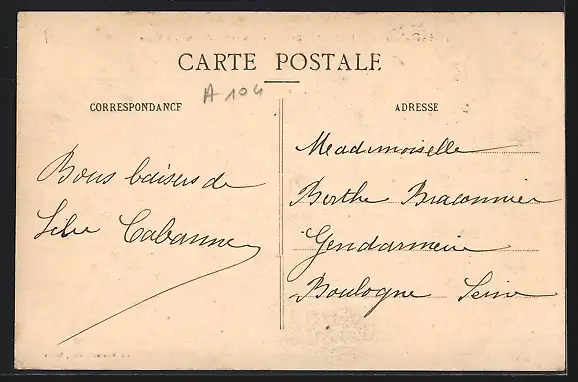 CARTE POSTALE
A 104
CORRESPONDANCE
Bons baisers de
Cabanne
ADRESSE
Mademoiselle
Berthe Braconnier
Gendarmerie
Boulogne Seine